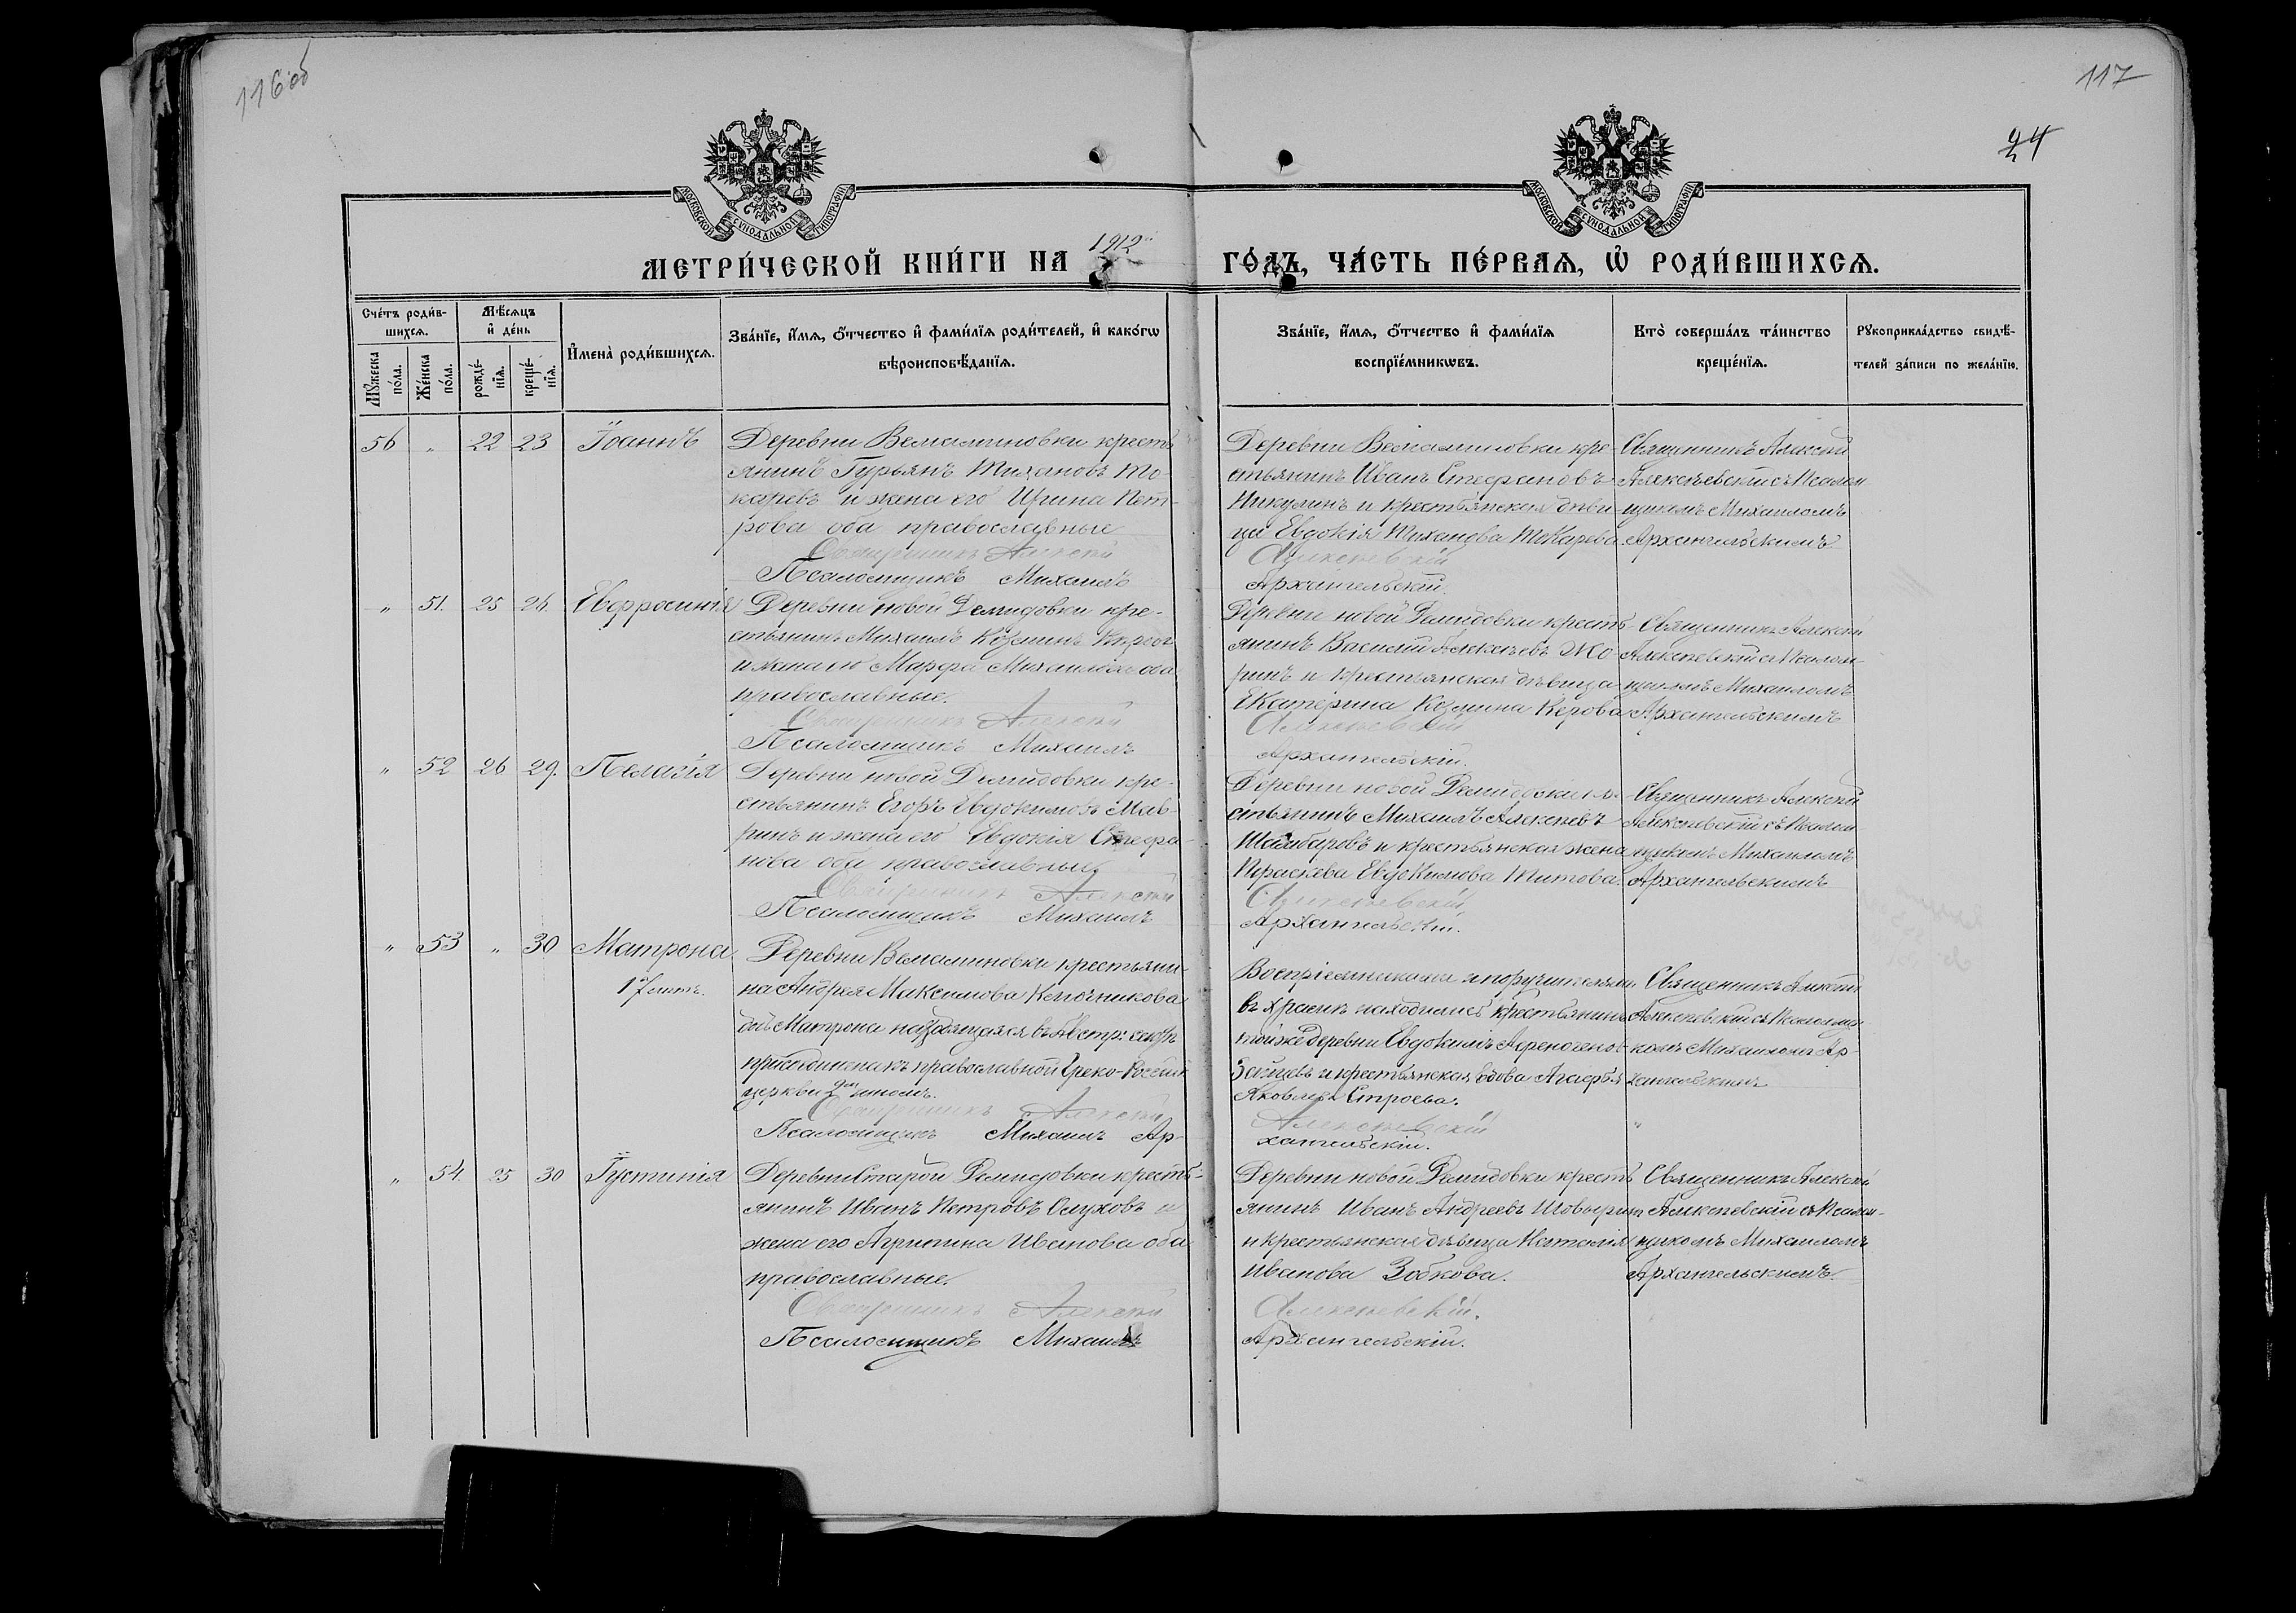 116 об
117
24
МОСКОВСКОЙ СѴНОДАЛЬНОЙ ТИПОГРАФІИ
МОСКОВСКОЙ СѴНОДАЛЬНОЙ ТИПОГРАФІИ
МЕТРИ́ЧЕСКОЙ КНИ́ГИ НА 1912 ГО́ДЪ, ЧА́СТЬ ПЕ́РВАѦ, Ѡ РОДИ́ВШИХСѦ.
Сче́тъ роди́в-
шихсѧ.
Мꙋ́жеска по́ла.
Же́нска по́ла.
Мѣ́сѧцъ
и҆ де́нь
рожде́-
нїѧ.
креще́-
нїѧ.
И҆мена̀ роди́вшихсѧ.
Зва́нїе, и҆́мѧ, ѻ҆́тчество и҆ фами́лїѧ роди́телей, и҆ како́гѡ
вѣроисповѣ́данїѧ.
Зва́нїе, и҆́мѧ, ѻ҆́тчество и҆ фами́лїѧ
воспрїе́мникѡвъ.
Кто̀ соверша́лъ та́инство
креще́нїѧ.
Рꙋкоприкла́дство свидѣ́-
телей за́писи по жела́нїю.
56 " 22 23 Іоаннъ
Деревни Вельаминовки кресть
янинъ Гурьянъ Тихановъ То-
каревъ и жена его Ирина Пет-
рова оба православные
Священникъ Алексій
Псаломщикъ Михаилъ
Деревни Вельаминовки кре-
стьянинъ Иванъ Стефановъ
Никулинъ и крестьянская дѣви-
ца Евдокія Тиханова Токарева
Алексѣевскій
Архангельскій.
Священникъ Алексій
Алексѣевскій съ Псалом
щикомъ Михаиломъ
Архангельскимъ
" 51. 25 26 Евфросинія
Деревни новой Демидовки кре-
стьянинъ Михаилъ Козминъ
и жена его Марфа Михаилова оба
православные.
Священникъ Алексій
Псаломщикъ Михаилъ
Деревни новой Демидовки кресть
янинъ Василій Алексѣевъ Жо-
ринъ и крестьянская дѣвица
Екатерина Козмина Керова
Алексѣевскій
Архангельскій.
Священникъ Алексій
Алексѣевскій съ Псалом-
щикомъ Михаиломъ
Архангельскимъ
" 52 26 29. Пелагія
Деревни новой Демидовки кре-
стьянинъ Егоръ Евдокимовъ Мав-
ринъ и жена его Евдокія Стефа-
нова оба православные
Священникъ Алексій
Псаломщикъ Михаилъ
Деревни новой Демидовки кр.
стьянинъ Михаилъ Алексѣевъ
и крестьянская жена
Праскева Евдокимова Титова.
Алексѣевскій
Архангельскій.
Священникъ Алексій
Алексѣевскій съ Псалом
щикомъ Михаиломъ
Архангельскимъ
" 53 " 30 Матрона
17 лѣтъ.
Деревни Вельаминовки крестьяни-
на Андрея Максимова Ключникова
дочь Матрона находящаяся въ Австр:
присоединена къ православной Греко-Россійс
церкви 2мъ чиномъ.
Священникъ Алексій
Псаломщикъ Михаилъ Ар-
Воспріемниками и поручителями
въ храмѣ находились крестьянинъ
той же деревни Евдокимъ Афеногенов
Зайцевъ и крестьянская вдова Агафья
Яковлева Строева.
Алексѣевскій
хангельскій.
Священникъ Алексій
Алексѣевскій съ Псаломщи
комъ Михаиломъ Ар-
хангельскимъ
" 54. 25 30 Іустинія
Деревни Старой Демидовки кресть-
янинъ Иванъ Петровъ Слуховъ и
жена его Агрипина Иванова оба
православные.
Священникъ Алексій
Псаломщикъ Михаилъ
Деревни новой Демидовки кресть
янинъ Иванъ Андреевъ Шовыринъ
и крестьянская дѣвица Наталія
Иванова Зобкова.
Алексѣевскій.
Архангельскій.
Священникъ Алексій
Алексѣевскій съ Псалом-
щикомъ Михаиломъ
Архангельскимъ.